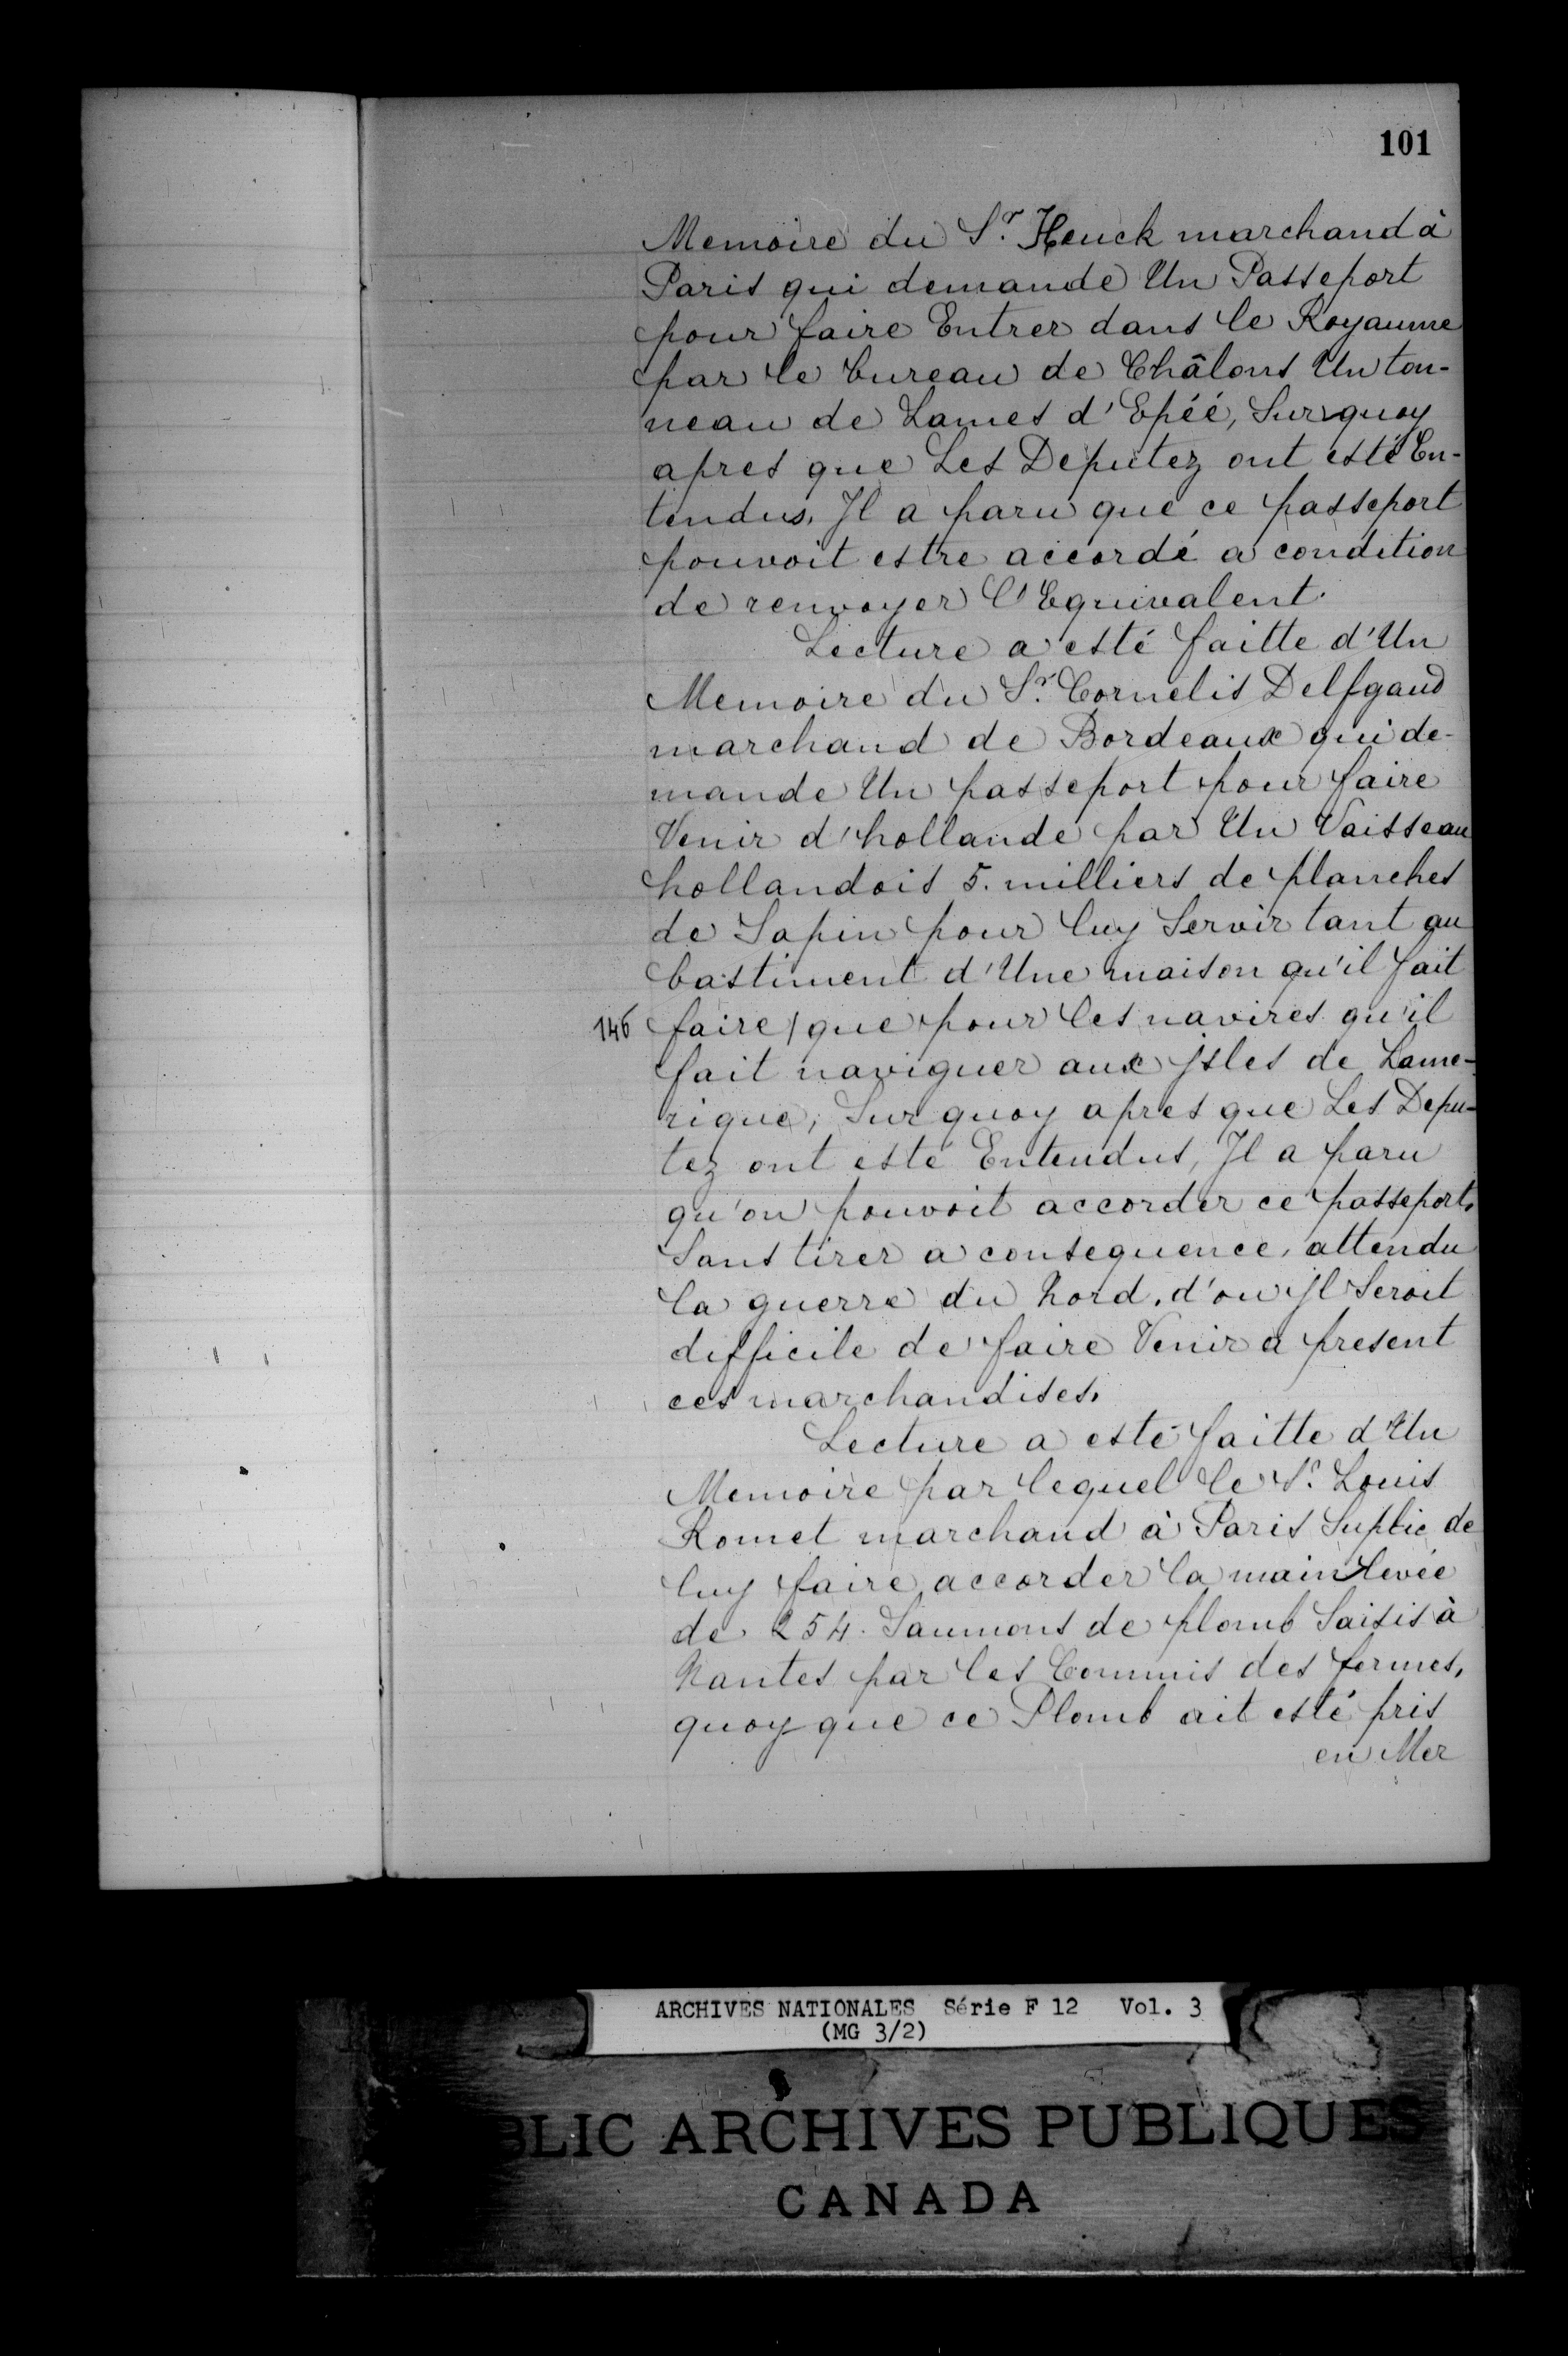 101
Memoire du Sr. Heuck marchand à
Paris qui demande Un Passeport
pour faire Entrer dans le Royaume
par le bureau de Châlons Un ton-
neau de Lames d'Epéé, Sur quoy
apres que Les Deputez ont esté En-
tendus, Jl a paru que ce passeport
pouvoit estre accordé a condition
de renvoyer l'Equivalent.
Lecture a esté faitte d'Un
Memoire du Sr. Cornelis Delfgaud
marchand de Bordeaux qui de-
mande Un passeport pour faire
Venir d'hollande par Un Vaisseau
hollandois 5. milliers de planches
de Sapin pour luy Servir tant au
bastiment d'Une maison qu'il fait
146 faire / que pour les navires qu'il
fait naviguer aux jsles de Lame-
rique, Sur quoy apres que Les Depu-
tez ont esté Entendus, Jl a paru
qu'on pouvoit accorder ce passeport,
Sans tirer a consequence, attendu
la guerre du Nord, d'ou jl Seroit
difficile de faire Venir a present
ces marchandises.
Lecture a esté faitte d'Un
Memoire par lequel le Sr. Louis
Romet marchand à Paris Suplie de
luy faire accorder la main levée
de 254. Saumons de plomb Saisis à
Nantes par les Commis des fermes,
quoy que ce Plomb ait esté pris
en Mer
ARCHIVES NATIONALES Série F 12 Vol. 3
(MG 3/2)
BLIC ARCHIVES PUBLIQUES
CANADA